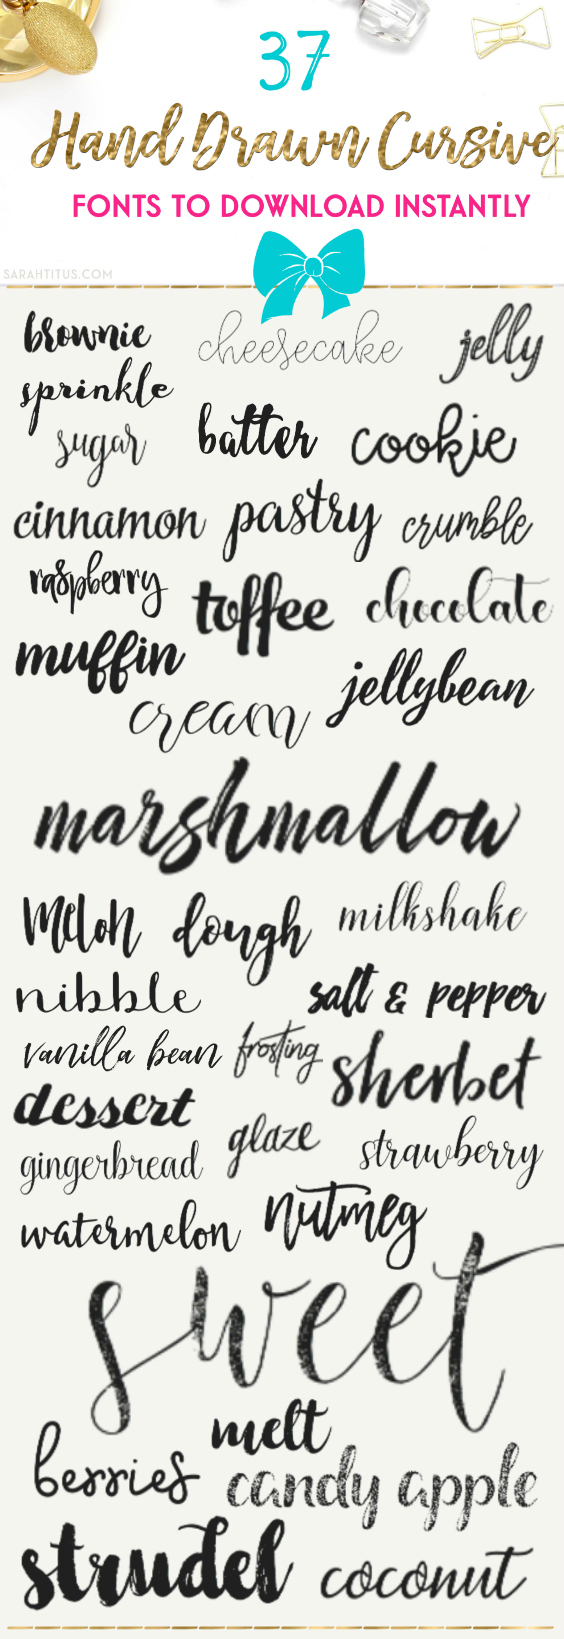 37
Hand Drawn Cursive
FONTS TO DOWNLOAD INSTANTLY
SARAHTITUS.COM
brownie cheesecake jelly
sprinkle
sugar batter cookie
cinnamon pastry crumble
raspberry toffee chocolate
muffin jellybean
cream
marshmallow
melon dough milkshake
nibble salt & pepper
vanilla bean frosting sherbet
dessert
gingerbread glaze strawberry
watermelon nutmeg
sweet
melt
berries candy apple
strudel coconut